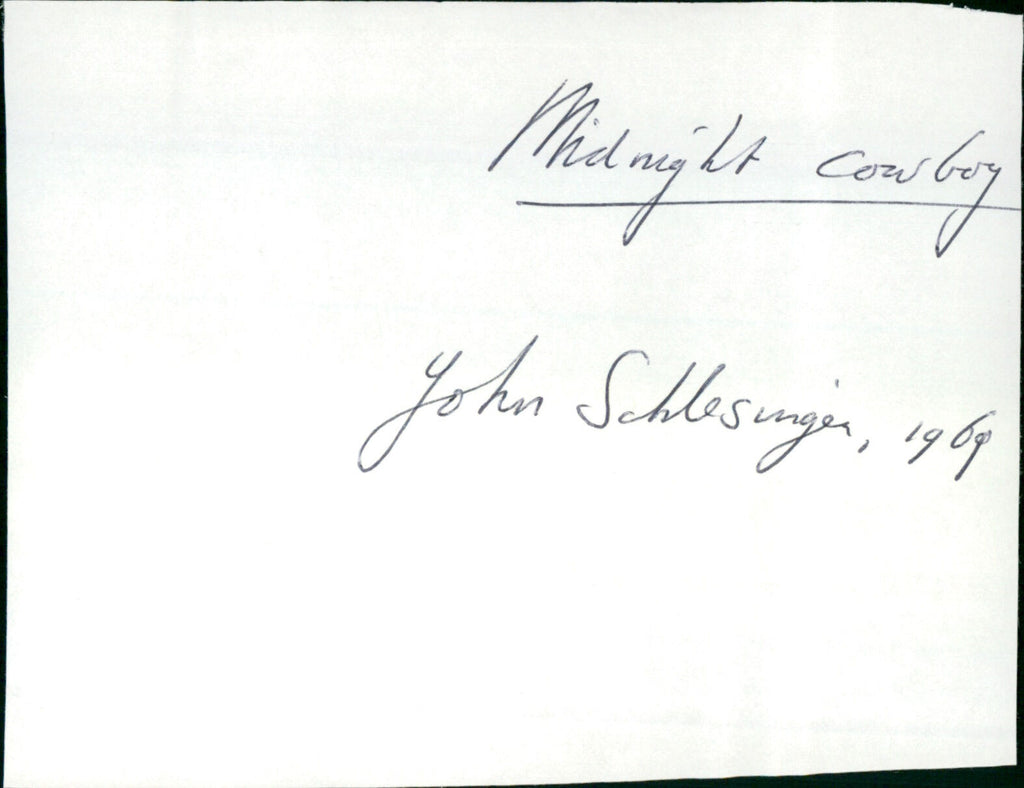 Midnight Cowboy
John Schlesinger, 1969